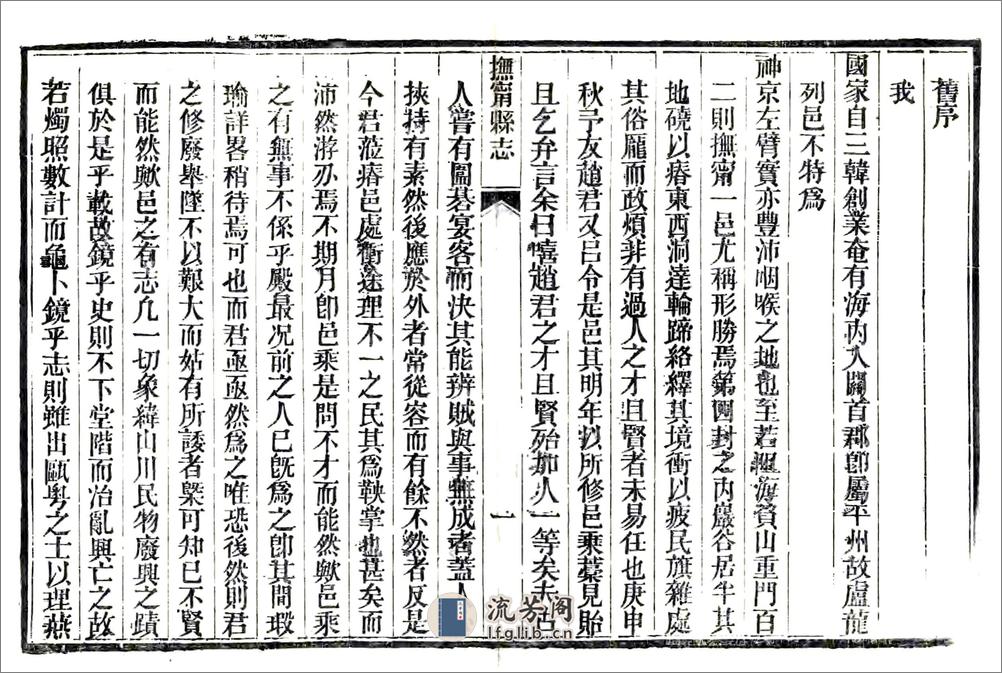 舊序
我
國家自三韓創業奄有海內入關首郡卽屬平州故盧龍
列邑不特爲
神京左臂實亦豐沛咽喉之地也至若襟海負山重門百
二則撫甯一邑尤稱形勝焉第四封之內巖谷居半其
地磽以瘠東西洞達輪蹄絡繹其境衝以疲民旗雜處
其俗龎而政煩非有過人之才且賢者未易任也庚申
秋予友趙君又呂令是邑其明年以所修邑乘藁見貽
且乞弁言余曰嘻趙君之才且賢殆加人一等矣夫古
撫甯縣志
一
人嘗有圍碁宴客而決其能辨賊與事無成者蓋人
挾持有素然後應於外者常從容而有餘不然者反是
今君蒞瘠邑處衝途理不一之民其爲鞅掌也甚矣而
沛然游刃焉不期月卽邑乘是問不才而能然歟邑乘
之有無事不係乎殿最况前之人已旣爲之卽其間瑕
瑜詳畧稍待焉可也而君亟亟然爲之唯恐後然則君
之修廢舉墜不以艱大而姑有所諉者槩可知已不賢
而能然歟邑之有志凡一切象緯山川民物廢興之蹟
俱於是乎載故鏡乎史則不下堂階而冶亂興亡之故
若燭照數計而龜卜鏡乎志則雖出甌粤之士以理燕
流芳阁
lfglib.cn